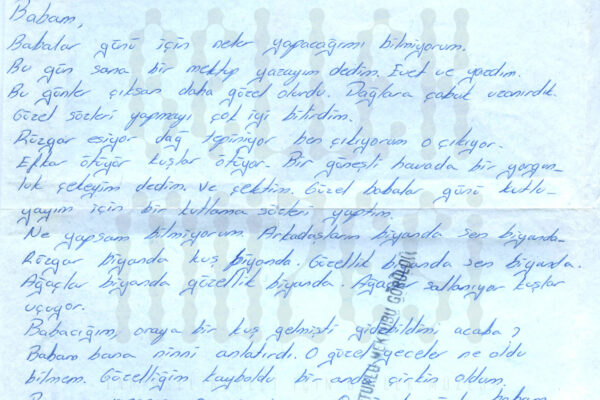 Babam,
Babalar günü için neler yapacağımı bilmiyorum.
Bu gün sana bir mektup yazayım dedim. Evet ve yazdım.
Bu günler çıksan daha güzel olurdu. Dağlara çabuk uzanırdık.
Güzel sözleri yapmayı çok iyi bilirdim.
Rüzgar esiyor dağ tepiniyor ben çıkıyorum o çıkıyor.
Efkar ötüyür kuşlar ötüyor. Bir güneşli havada bir yorgun-
luk çekeyim dedim. Ve çektim. Güzel babalar günü kutlu-
yayım için bir kutlama sözleri yaptım.
Ne yapsam bilmiyorum. Arkadaşların biyanda sen biyanda.
Rüzgar biyanda kuş biyanda. Güzellik biyanda sen biyanda.
Ağaçlar biyanda güzellik biyanda. Ağaçlar sallanıyor kuşlar
uçuyor.
Babacığım, oraya bir kuş gelmişti gidebildimi acaba?
Babam bana ninni anlatırdı. O güzel geceler ne oldu
bilmem. Güzelliğim kayboldu bir anda çirkin oldum.
babam
MEKTUBU GÖRÜLDÜ